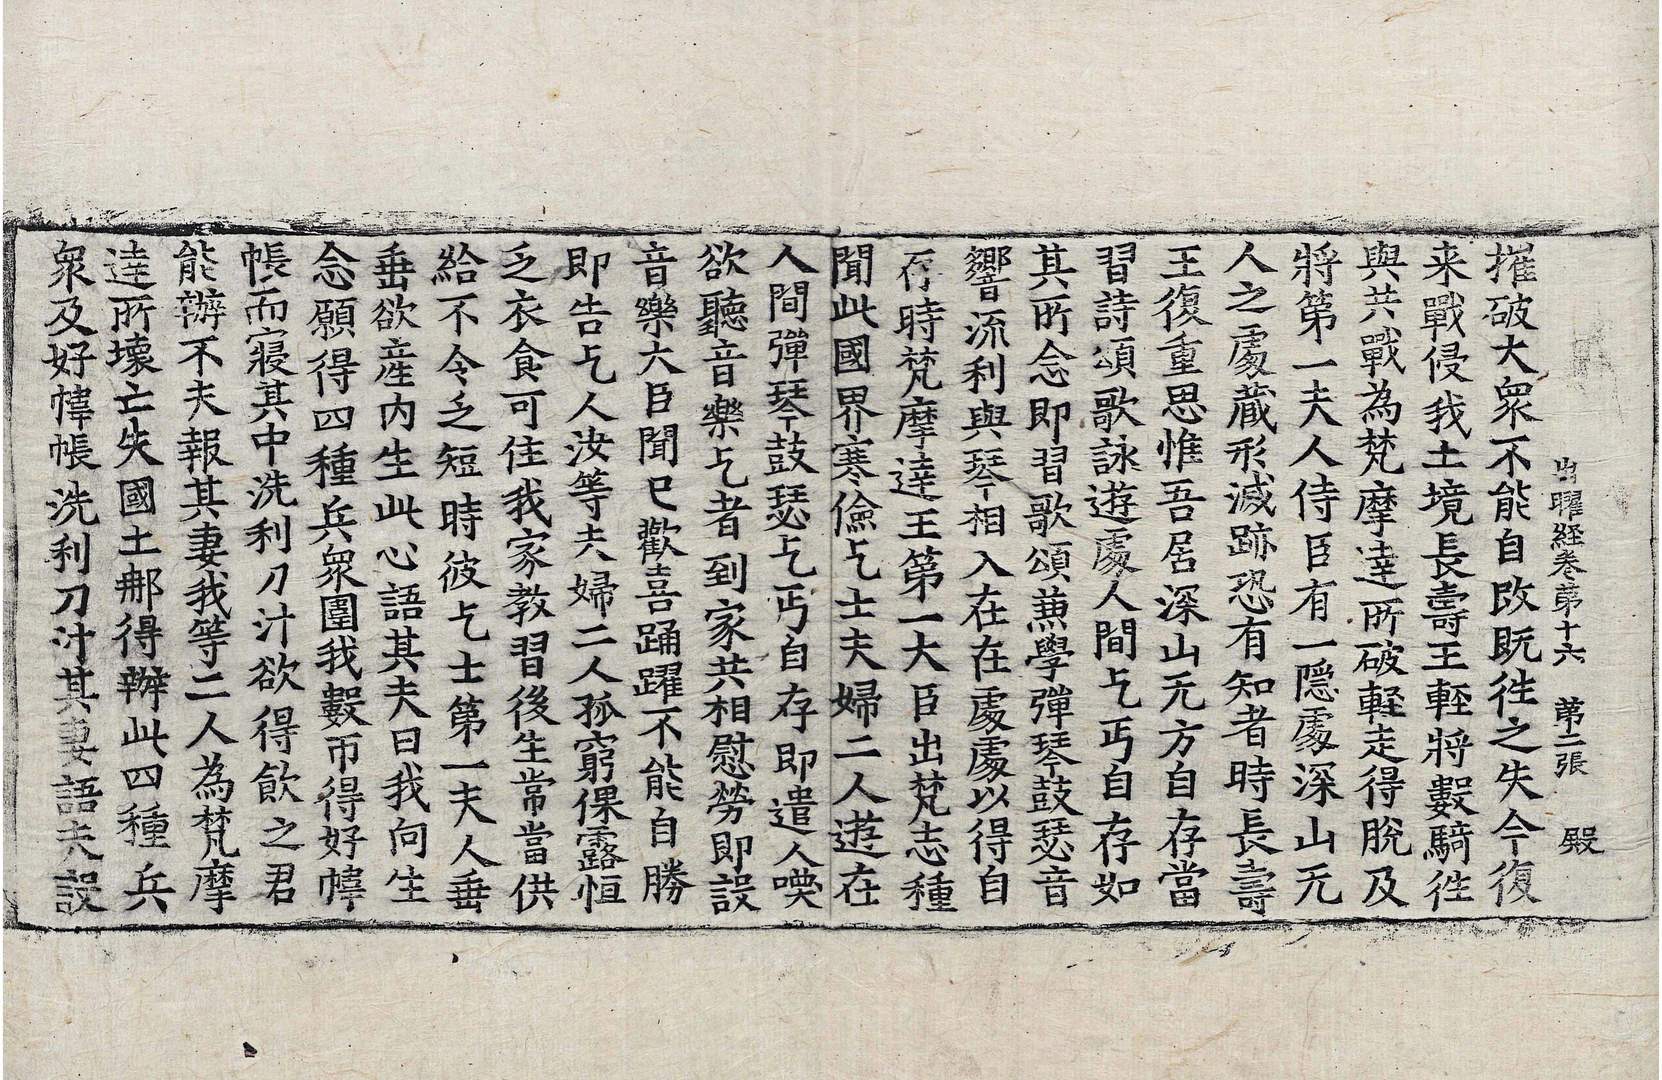 出曜経卷第十六 第二張 殿
摧破大衆不能自改既徃之失今復
来戰侵我土境長壽王輕將數騎徃
與共戰為梵摩達所破輕走得脫及
將第一夫人侍臣有一隠處深山无
人之處蔵形滅跡恐有知者時長壽
王復重思惟吾居深山无方自存當
習詩頌歌詠遊處人間乞丐自存如
其所念即習歌頌蕪學彈琴鼓瑟音
響流利與琴相入在在處處以得自
存時梵摩達王第一大臣出梵志種
聞此國界寒儉乞士夫婦二人遊在
人間彈琴鼓瑟乞丐自存即遣人喚
欲聽音樂乞者到家共相慰勞即設
音樂大臣聞已歡喜踊躍不能自勝
即告乞人汝等夫婦二人孤窮倮露恒
乏衣食可住我家教習後生常當供
給不令乏短時彼乞士第一夫人垂
垂欲産内生此心語其夫曰我向生
念願得四種兵衆圍我數帀得好幃
帳而寢其中洗利刀汁欲得飲之君
能辦不夫報其妻我等二人為梵摩
達所壊亡失國土𨚗得辦此四種兵
衆及好幃帳洗利刀汁其妻語夫設